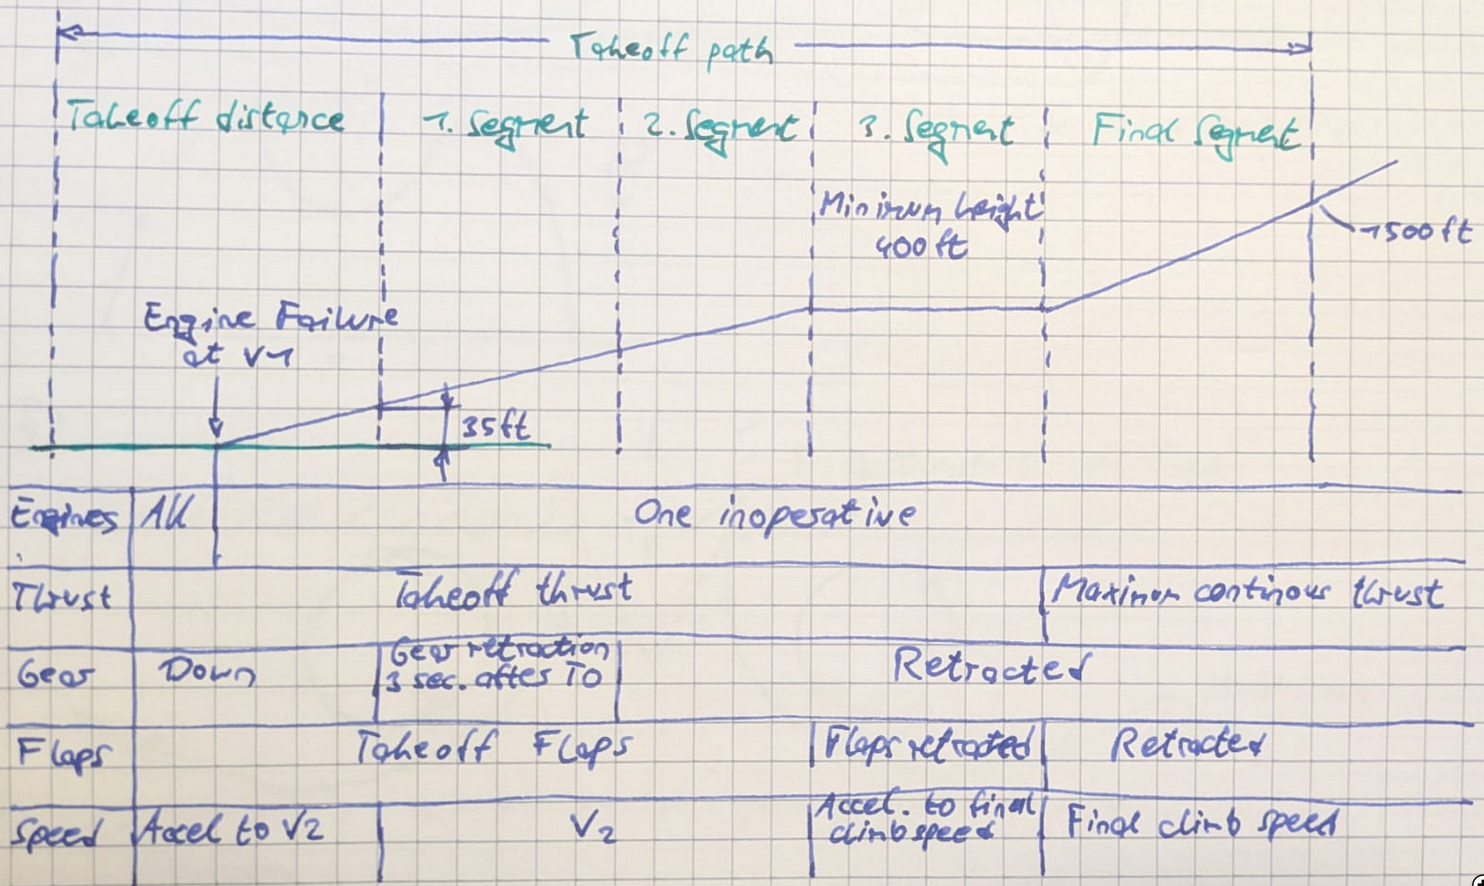 Takeoff path
Takeoff distance 1. Segment 2. Segment 3. Segment Final Segment
Minimum height
400 ft
1500 ft
Engine Failure
at V1
35 ft
Engines All One inoperative
Thrust Takeoff thrust Maximum continous thrust
Gear Down Gear retraction
3 sec. after TO Retracted
Flaps Takeoff Flaps Flaps retracted Retracted
Speed Accel to V2 V2 Accel. to final
climb speed Final climb speed